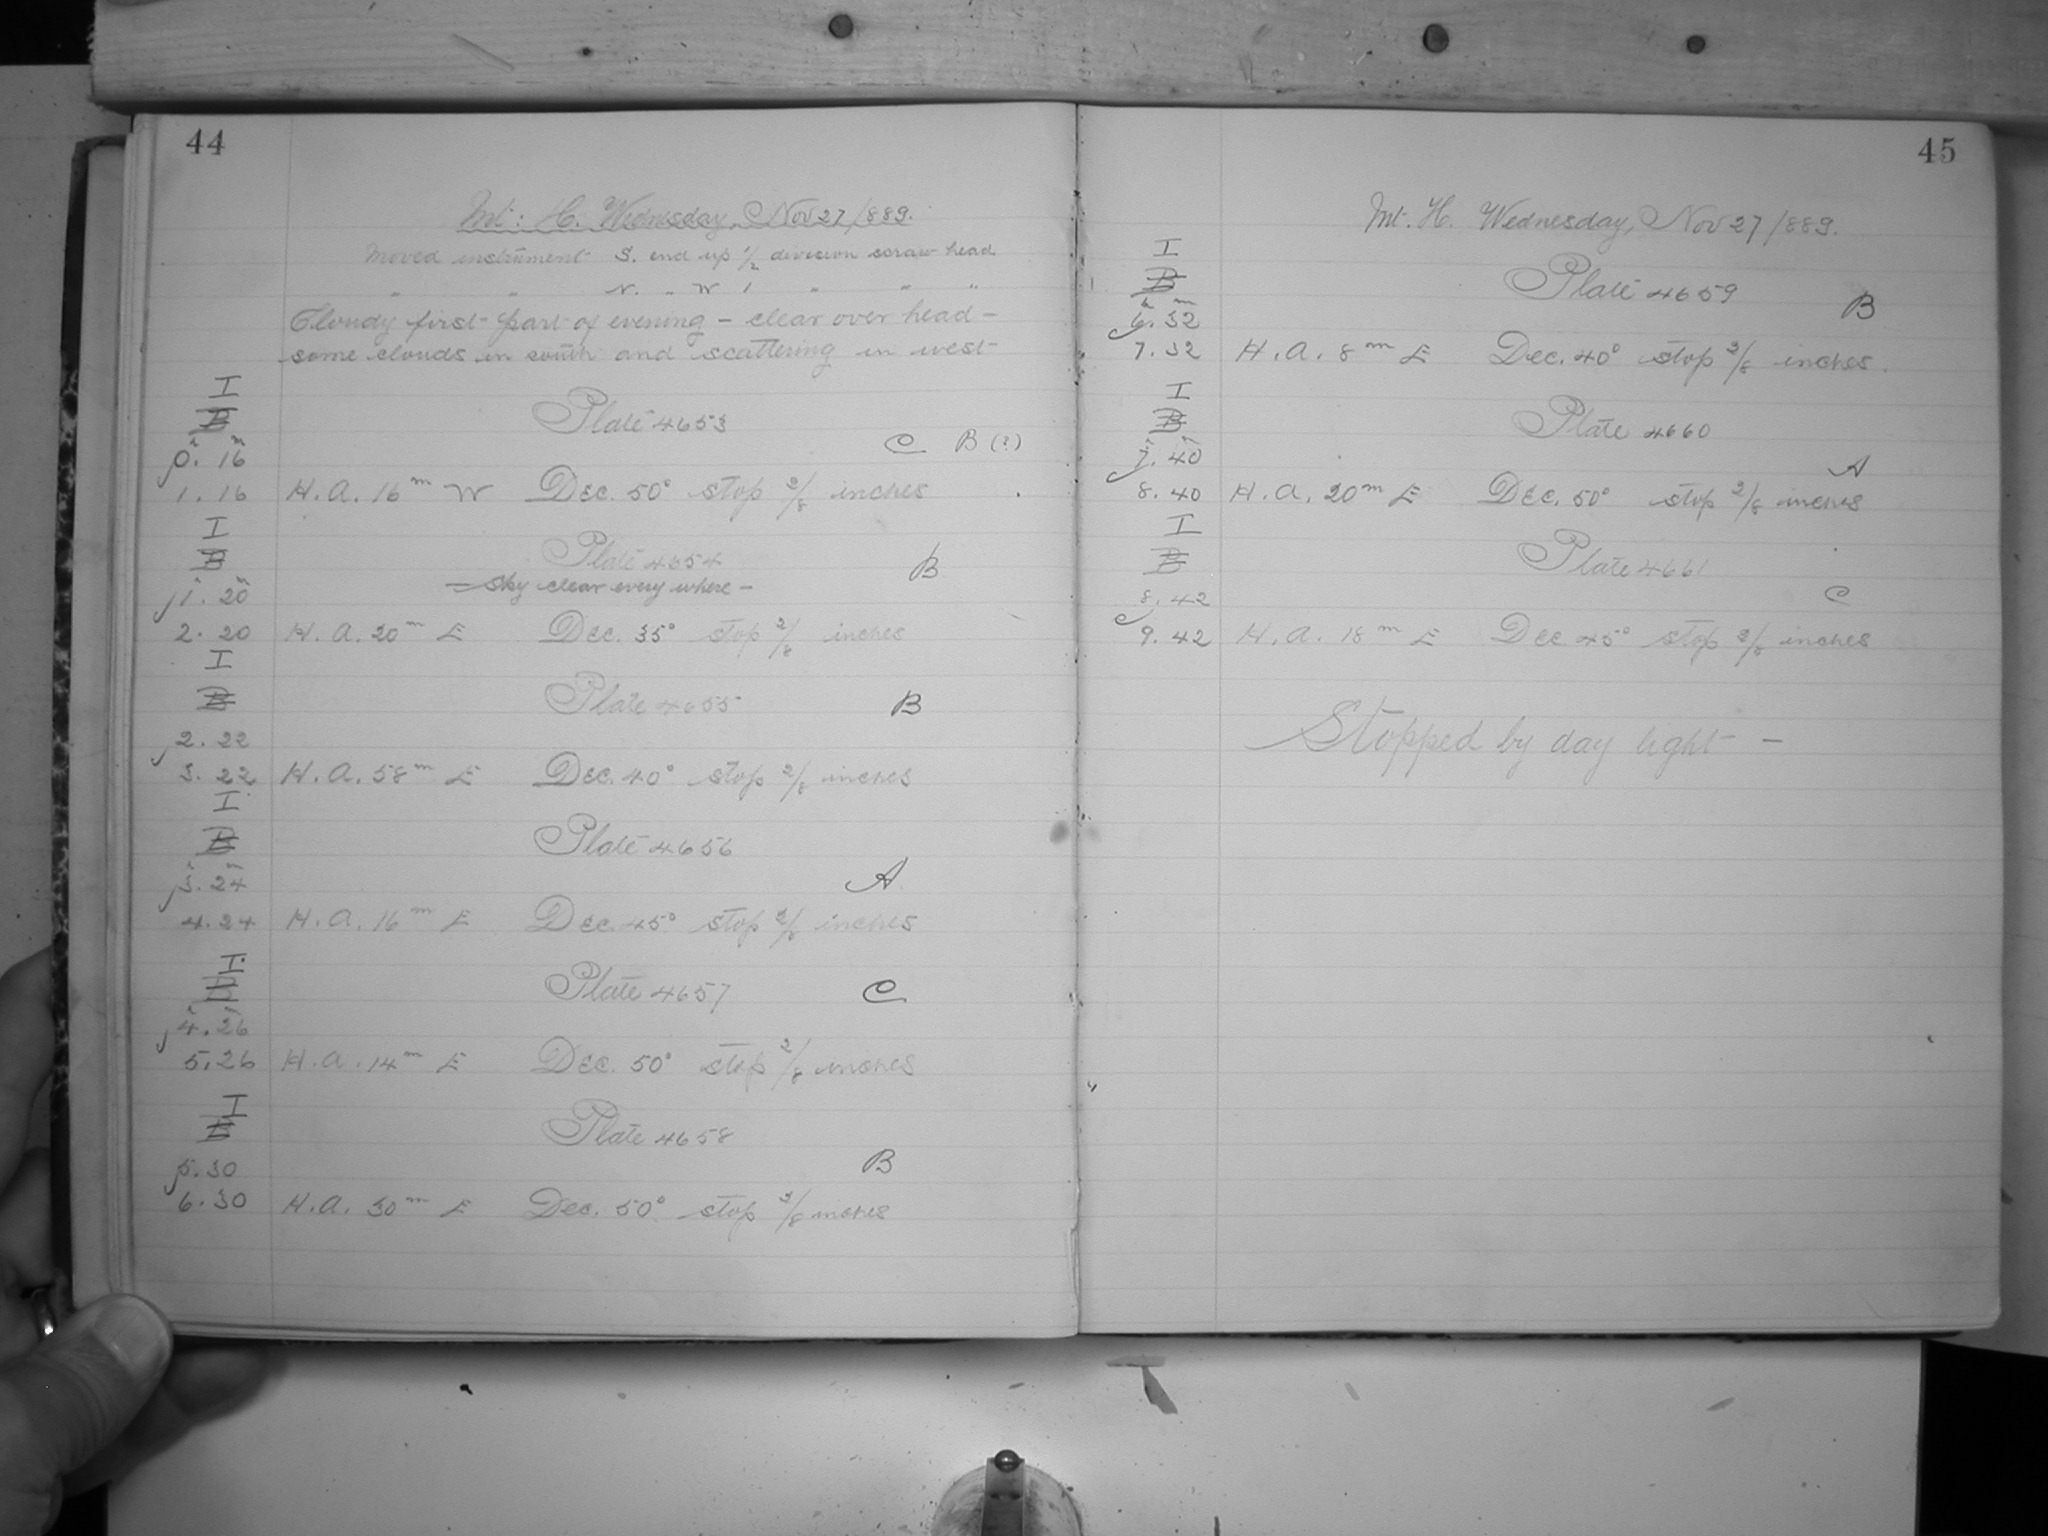 44
Mt. H. Wednesday, Nov 27/889.
Moved instrument S. end up 1/2 division scraw head
" " N. " W 1 " " "
Cloudy first part of evening – clear over head –
some clouds in south and scattering in west –
I
B
Plate 4653
C B (?)
0. 16
1. 16 H. A. 16m W Dec. 50° stop 2/8 inches
I
B
Plate 4654
B
– Sky clear every where –
1. 20
2. 20 H. A. 20m E Dec. 35° stop 2/8 inches
I
B
Plate 4655
B
2. 22
3. 22 H. A. 58m E Dec. 40° stop 2/8 inches
I
B
Plate 4656
h m
3. 24
A
4. 24 H. A. 16m E Dec. 45° stop 2/8 inches
I
B
Plate 4657
C
4. 26
5. 26 H. A. 14m E Dec. 50° stop 2/8 inches
I
B
Plate 4658
B
5. 30
6. 30 H. A. 30m E Dec. 50° stop 2/8 inches
45
Mt. H. Wednesday, Nov 27/889.
I
B
Plate 4659
B
h m
6. 32
7. 32 H. A. 8m E Dec. 40° stop 2/8 inches.
I
B
Plate 4660
7. 40
A
8. 40 H. A. 20m E Dec. 50° stop 2/8 inches
I
B
Plate 4661
C
8. 42
9. 42 H. A. 18m E Dec 45° stop 2/8 inches
Stopped by day light –